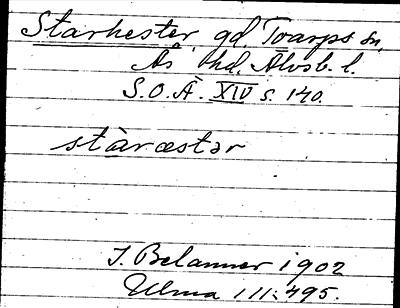 Starhester, gd. Toarps sn,
Ås hd. Älvsb. l.
S.O.Ä. XIV s. 140.
stàrœstər
J. Belanner 1902
Ulma 111:495.